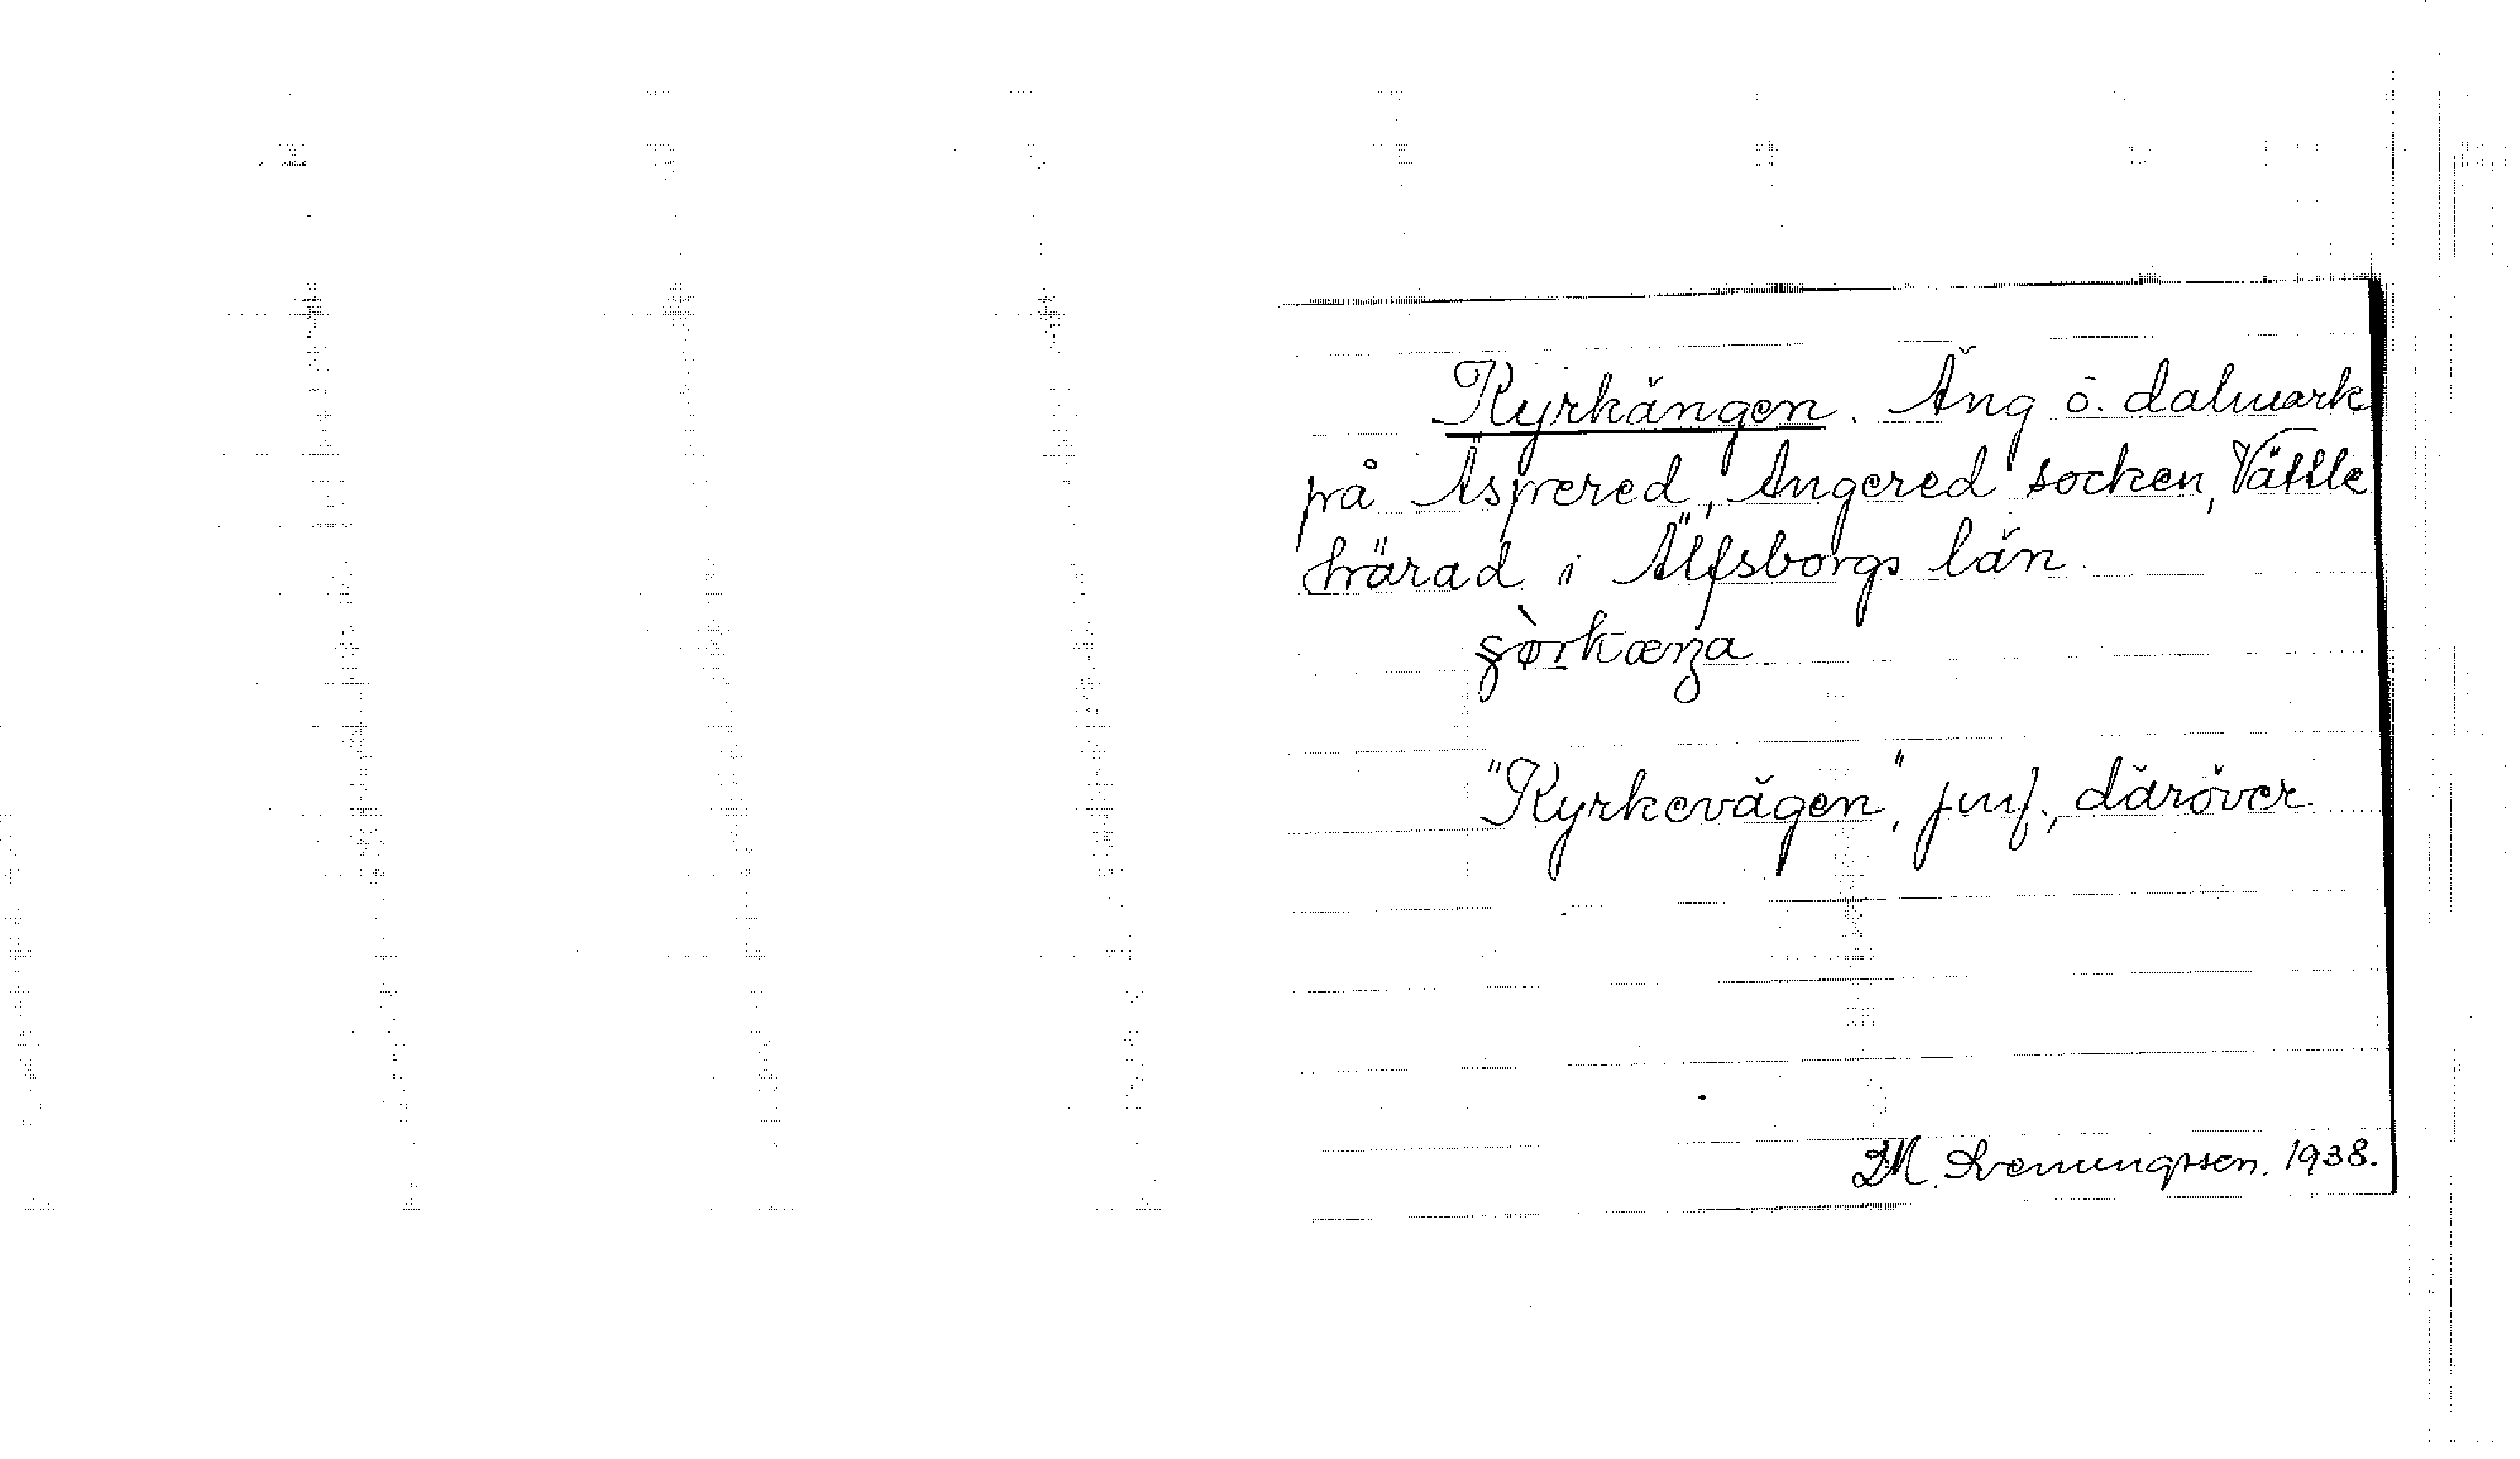 Kyrkängen. Äng ö. dalmark
på Äspered, Angered socken, Vättle
härad i Älfsborgs län.
"Kyrkevägen", jmf., däröver
M. Svenungsson. 1938.